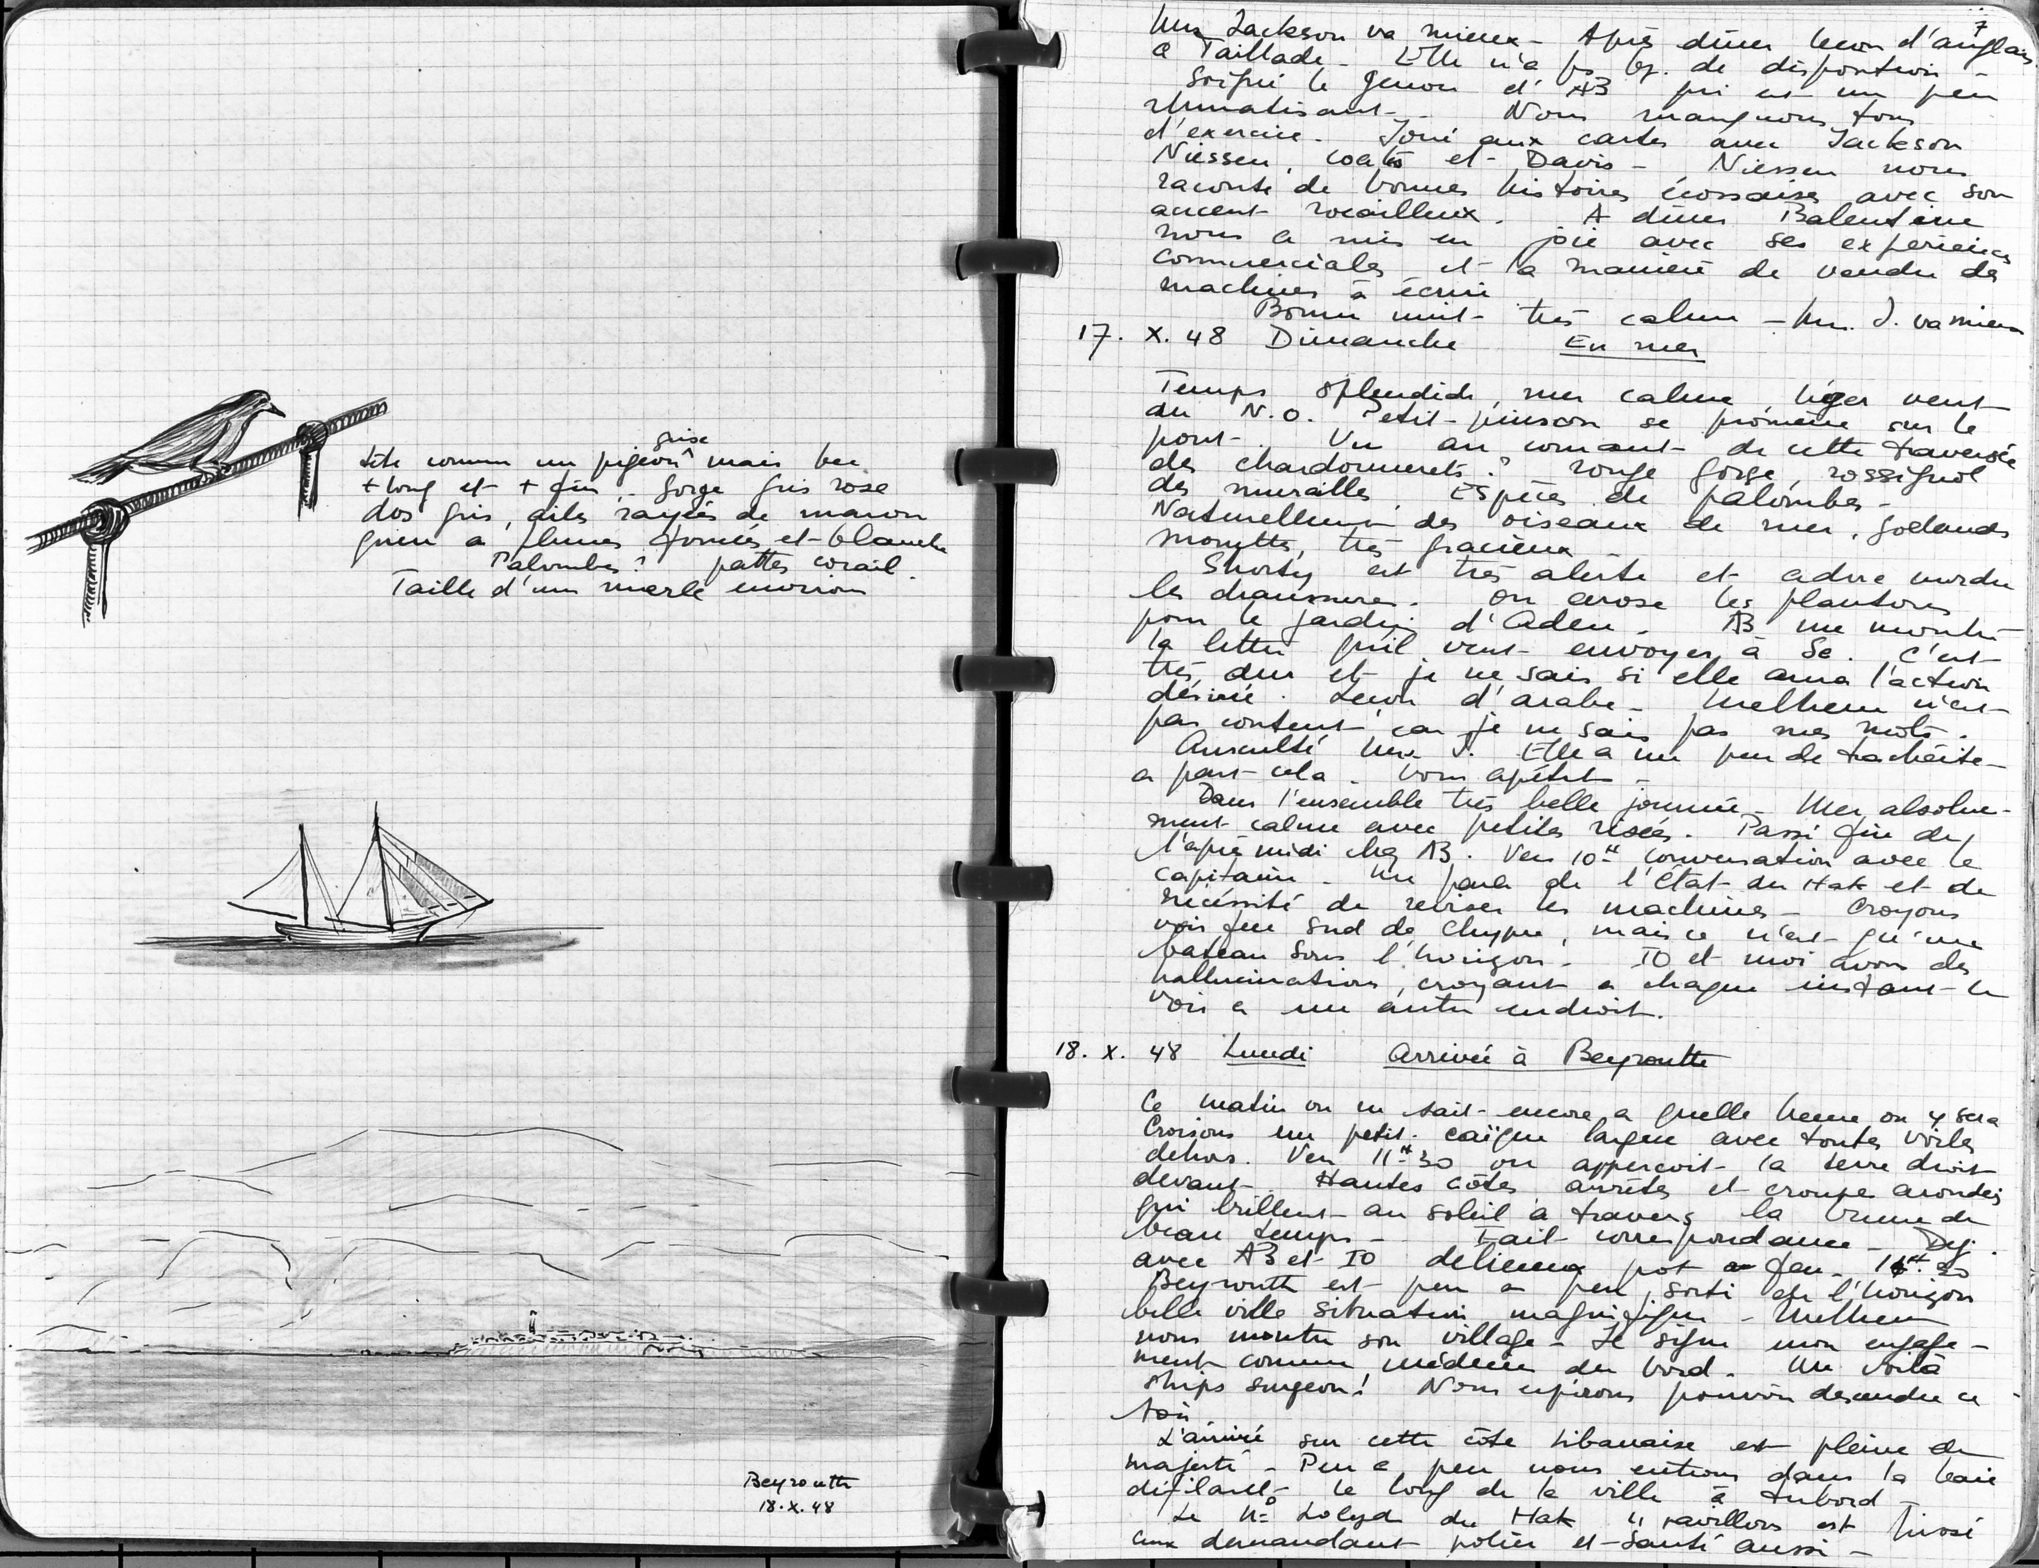 grise
tête comme un pigeon ^ mais bec
+ long et + fin - gorge gris rose
dos gris, ailes rayées de maron
queu a plumes foncées et blanche
Palombes ? pattes corail.
Taille d'un merle environ
Beyrouth
18.X.48
7
Mrs Jackson va mieux - Après diner lecon d'anglais
a Taillade - Elle n'a ps bp. de disposition -
Soigné le genou d'AB qui est un peu
rhumatisant - Nous manquons tous
d'exercice - Joué aux cartes avec Jackson
Niessen, Coats et Davis - Niessen nous
raconte de bonnes histoires écossaises avec son
accent rocailleux. A diner Balentine
nous a mis en joie avec ses expériences
commerciales et la manière de vendre des
machines à écrire
Bonne nuit très calme - Mrs. J. va mieux
17. X. 48 Dimanche En mer
Temps splendide, mer calme, léger vent
du N.O. Petit pinson se promène sur le
pont. Vu au courant de cette traversée
des chardonnerets ? rouge gorge, rossignol
des murailles Espèces de palombes -
Naturellement des oiseaux de mer, goelands
mouettes, très gracieux -
Shorty est très alerte et adore mordre
les chaussures. On arose les plantons
pour le jardin d'Aden. AB me montre
la lettre qu'il veut envoyer à Se. C'est
très dur et je ne sais si elle aura l'action
désirée. Lecon d'arabe - Melhem n'est
pas content car je ne sais pas mes mots.
Ausculté Mrs J. Elle a un peu de trachéite -
a part cela. bon apétit -
Dans l'ensemble très belle journée - Mer absolue-
ment calme avec petites risées. Passé fin de
l'après midi chez AB. Vers 10H conversation avec le
capitaine. Me parle de l'état du Hak et de
nécéssité de reviser les machines - Croyons
voir feu Sud de Chypre, mais ce n'est qu'une
bateau sous l'horizon - IO et moi avons des
hallucinations, croyant a chaque instant le
voir a un autre endroit.
18. X. 48 Lundi Arrivée à Beyrouth
Ce matin on ne sait encore a quelle heure on y sera
Croisons un petit caïque largue avec toutes voiles
dehors. Vers 11H30 on apperçoit la terre droit
devant Hautes côtes arrêtes et croupe arondies
qui brillent au soleil à travers la brume de
beau temps - Fait correspondance - Dej.
avec AB et IO delicieux pot a feu. 30
Beyrouth est peu a peu sorti de l'horizon
belle ville situation magnifique - Melhem
nous montre son village - Je signe mon engage-
ment comme médecin du bord. Me voilà
ships surgeon ! Nous espérons pouvoir descendre ce
soir
L'arrivée sur cette côte libanaise est pleine de
majesté - Peu a peu nous entrons dans la baie
défilant le long de la ville à tribord -
Le No Loloyd du Hak pavillons est hissé
aux demandant police et Santé aussi -